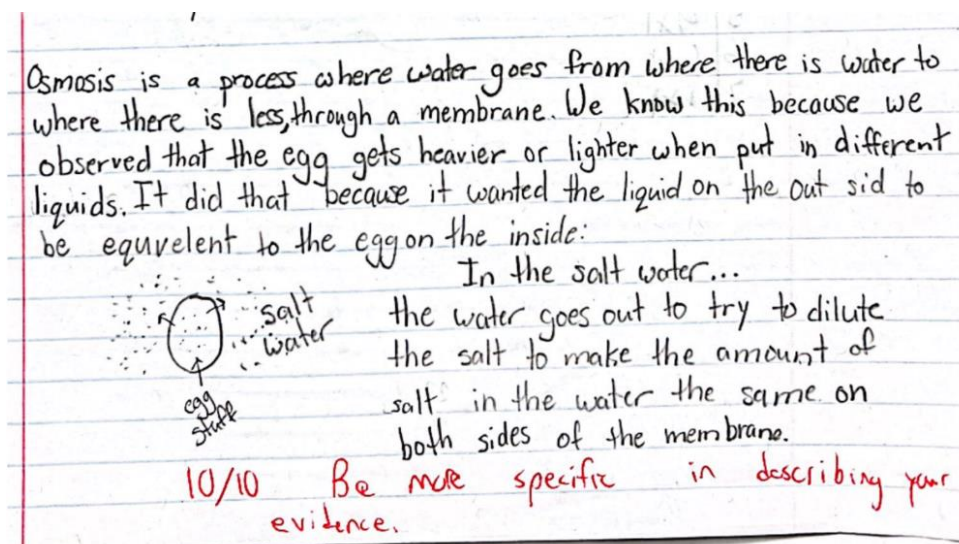 Osmosis is a process where water goes from where there is water to
where there is less, through a membrane. We know this because we
observed that the egg gets heavier or lighter when put in different
liquids. It did that because it wanted the liquid on the out sid to
be equvelent to the egg on the inside:
In the salt water...
salt
water
egg
stuff
the water goes out to try to dilute
the salt to make the amount of
salt in the water the same on
both sides of the membrane.
10/10 Be more specific in describing your
evidence.